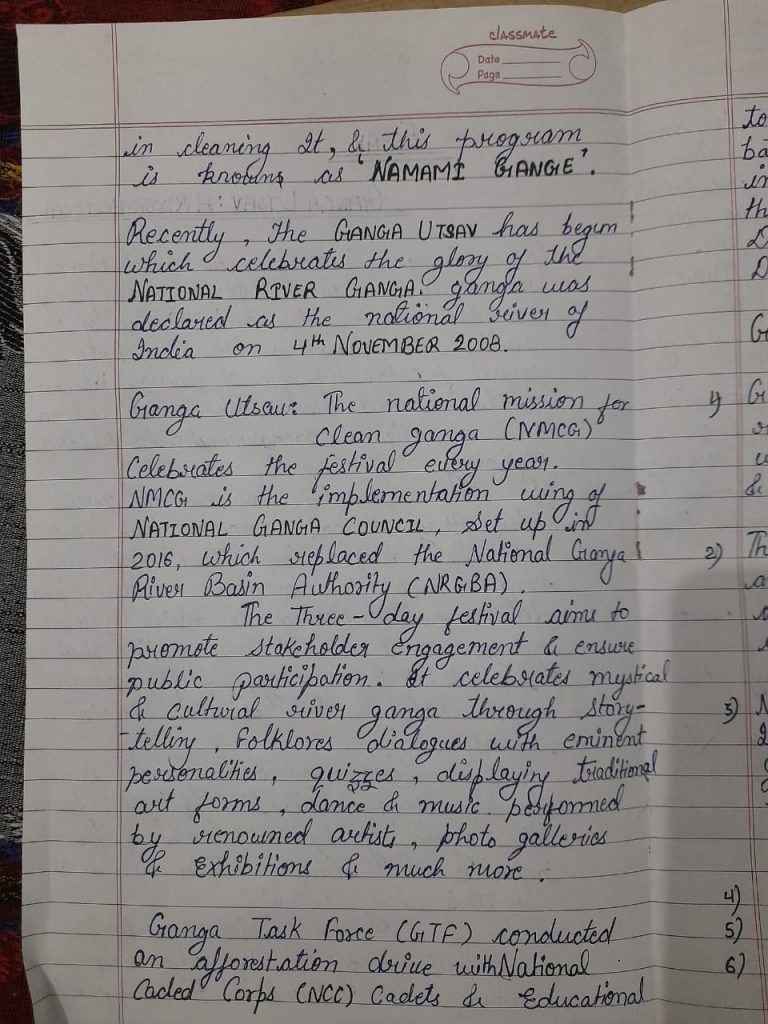 classmate
Date
Page
in cleaning It, & this program
is known as 'NAMAMI GANGE'.
Recently, the GANGA UTSAV has begun
which celebrates the glory of the
NATIONAL RIVER GANGA. ganga was
declared as the national river of
India on 4th NOVEMBER 2008.
Ganga Utsav: The national mission for
Clean ganga (NMCG)
Celebrates the festival every year.
NMCG is the implementation wing of
NATIONAL GANGA COUNCIL, set up in
2016, which replaced the National Ganga
River Basin Authority (NRGBA).
The Three-day festival aims to
promote stakeholder engagement & ensure
public participation. It celebrates mystical
& cultural river ganga through story-
-telling, Folklores dialogues with eminent
personalities, quizzes, displaying traditional
art forms, dance & music performed
by renowned artists, photo galleries
& Exhibitions & much more.
Ganga Task Force (GTF) conducted
an afforestation drive with National
Caded Corps (NCC) Cadets & Educational
to
in
th
D
D
G
1) G
&
2) Th
3) N
2
4)
5)
6)